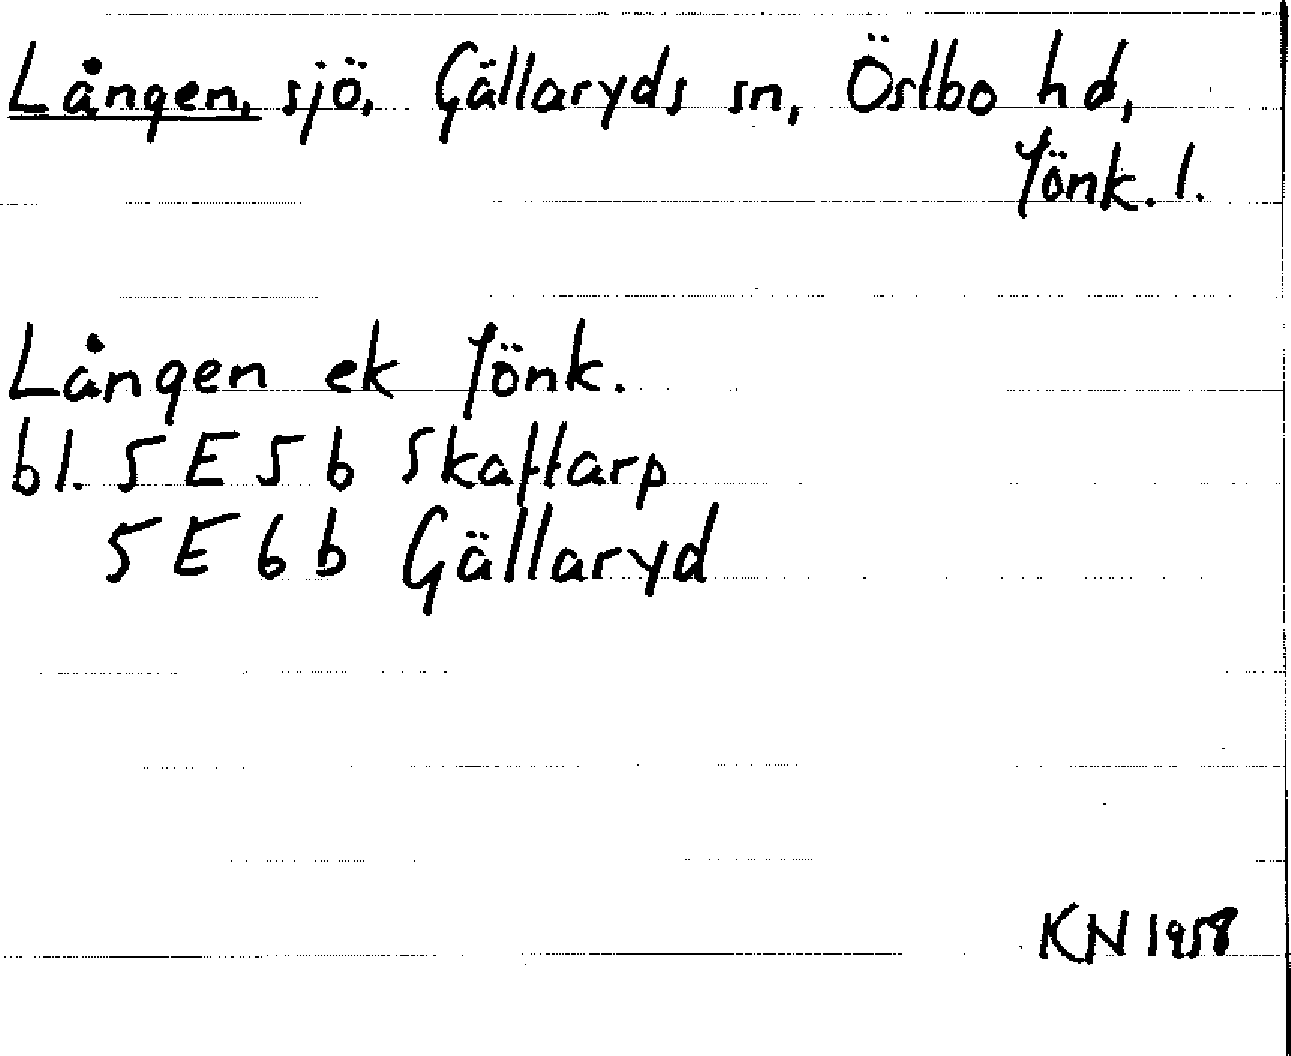 Lången, sjö, Gällaryds sn, Östbo hd,
Jönk. l.
Lången ek Jönk.
bl. 5 E 5 b Skaftarp
5 E 6 b Gällaryd
KN 1958